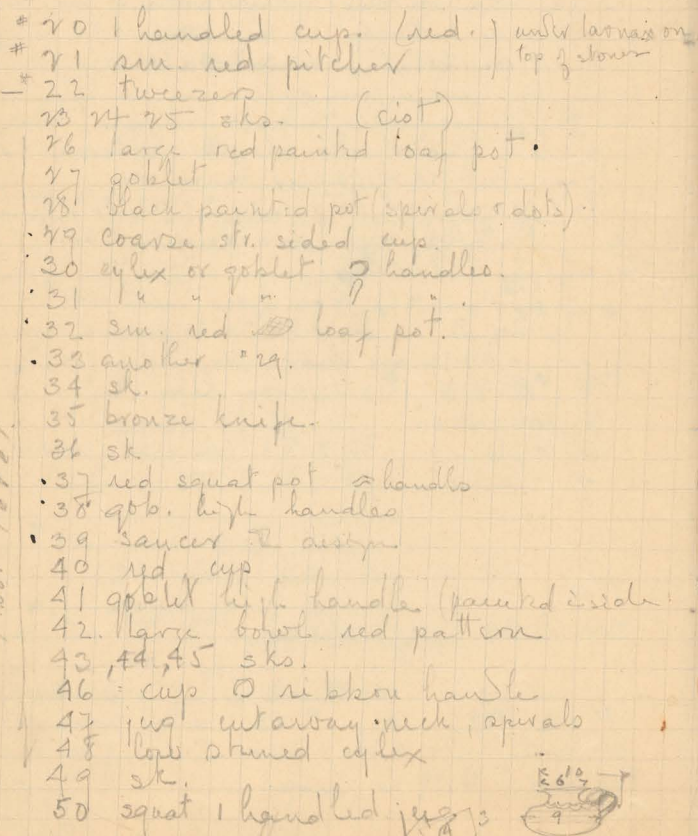 # 20 1 handled cup. (red.) under larnax on
# 21 sm. red pitcher ) top of stones
* 22 tweezers
23 24 25 sks. (cist)
26 large red painted loaf pot.
27 goblet
28 black painted pot (spirals & dots).
. 29 coarse str. sided cup.
. 30 cylex or goblet handles.
. 31 " " " " .
. 32 sm. red loaf pot.
. 33 another " 29.
34 sk.
35 bronze knife.
36 sk
. 37 red squat pot handls
. 38 gob. high handles
. 39 saucer design
40 red cup
41 goblet high handle (painted inside
42. large bowl red pattern
43, 44, 45 sks.
46 cup ribbon handle
47 jug cutaway neck, spirals
48 low stemed cylex
49 sk.
50 squat 1 handled jug
6 10
9